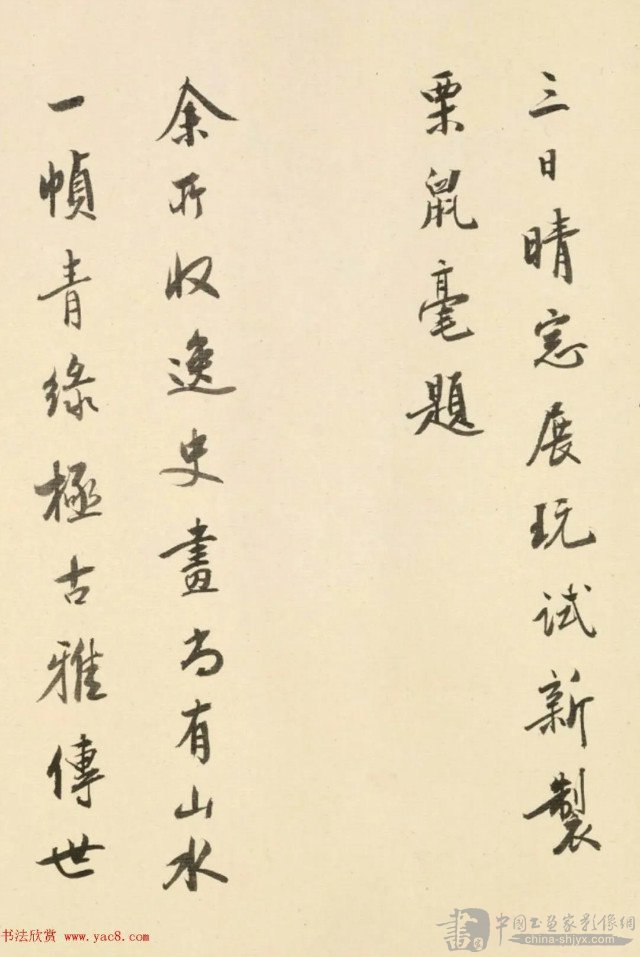 三日晴窓展玩試新製
栗鼠毫題
余所收逸史畫尚有山水
一幀青綠極古雅傳世
书法欣赏 www.yac8.com
書 中國书画家影像網
china-shjyx.com